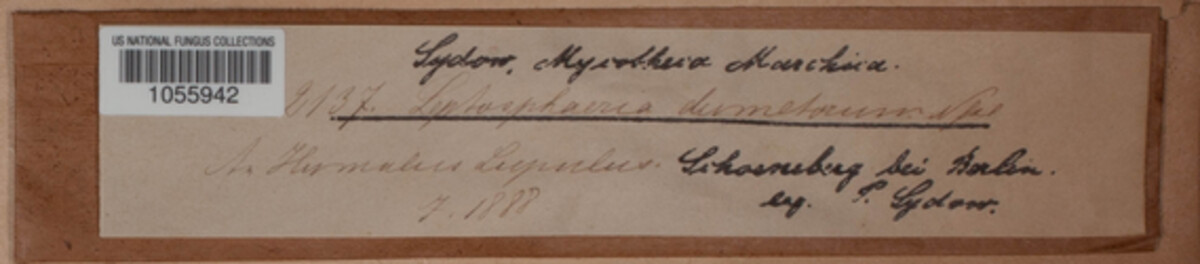 US NATIONAL FUNGUS COLLECTIONS
1055942
Sydow, Mycotheca Marchica.
2137. Leptosphaeria dumetorum Nssl
An Humulus Lupulus. Schoeneberg bei Berlin.
7. 1888 leg. P. Sydow.